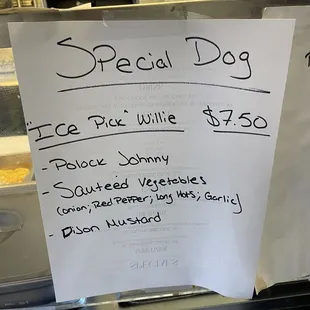 Special Dog
"Ice Pick" Willie $7.50
- Polock Johnny
- Sauteed Vegetables
(onion; Red Pepper; Long Hots; Garlic)
- Dijon Mustard